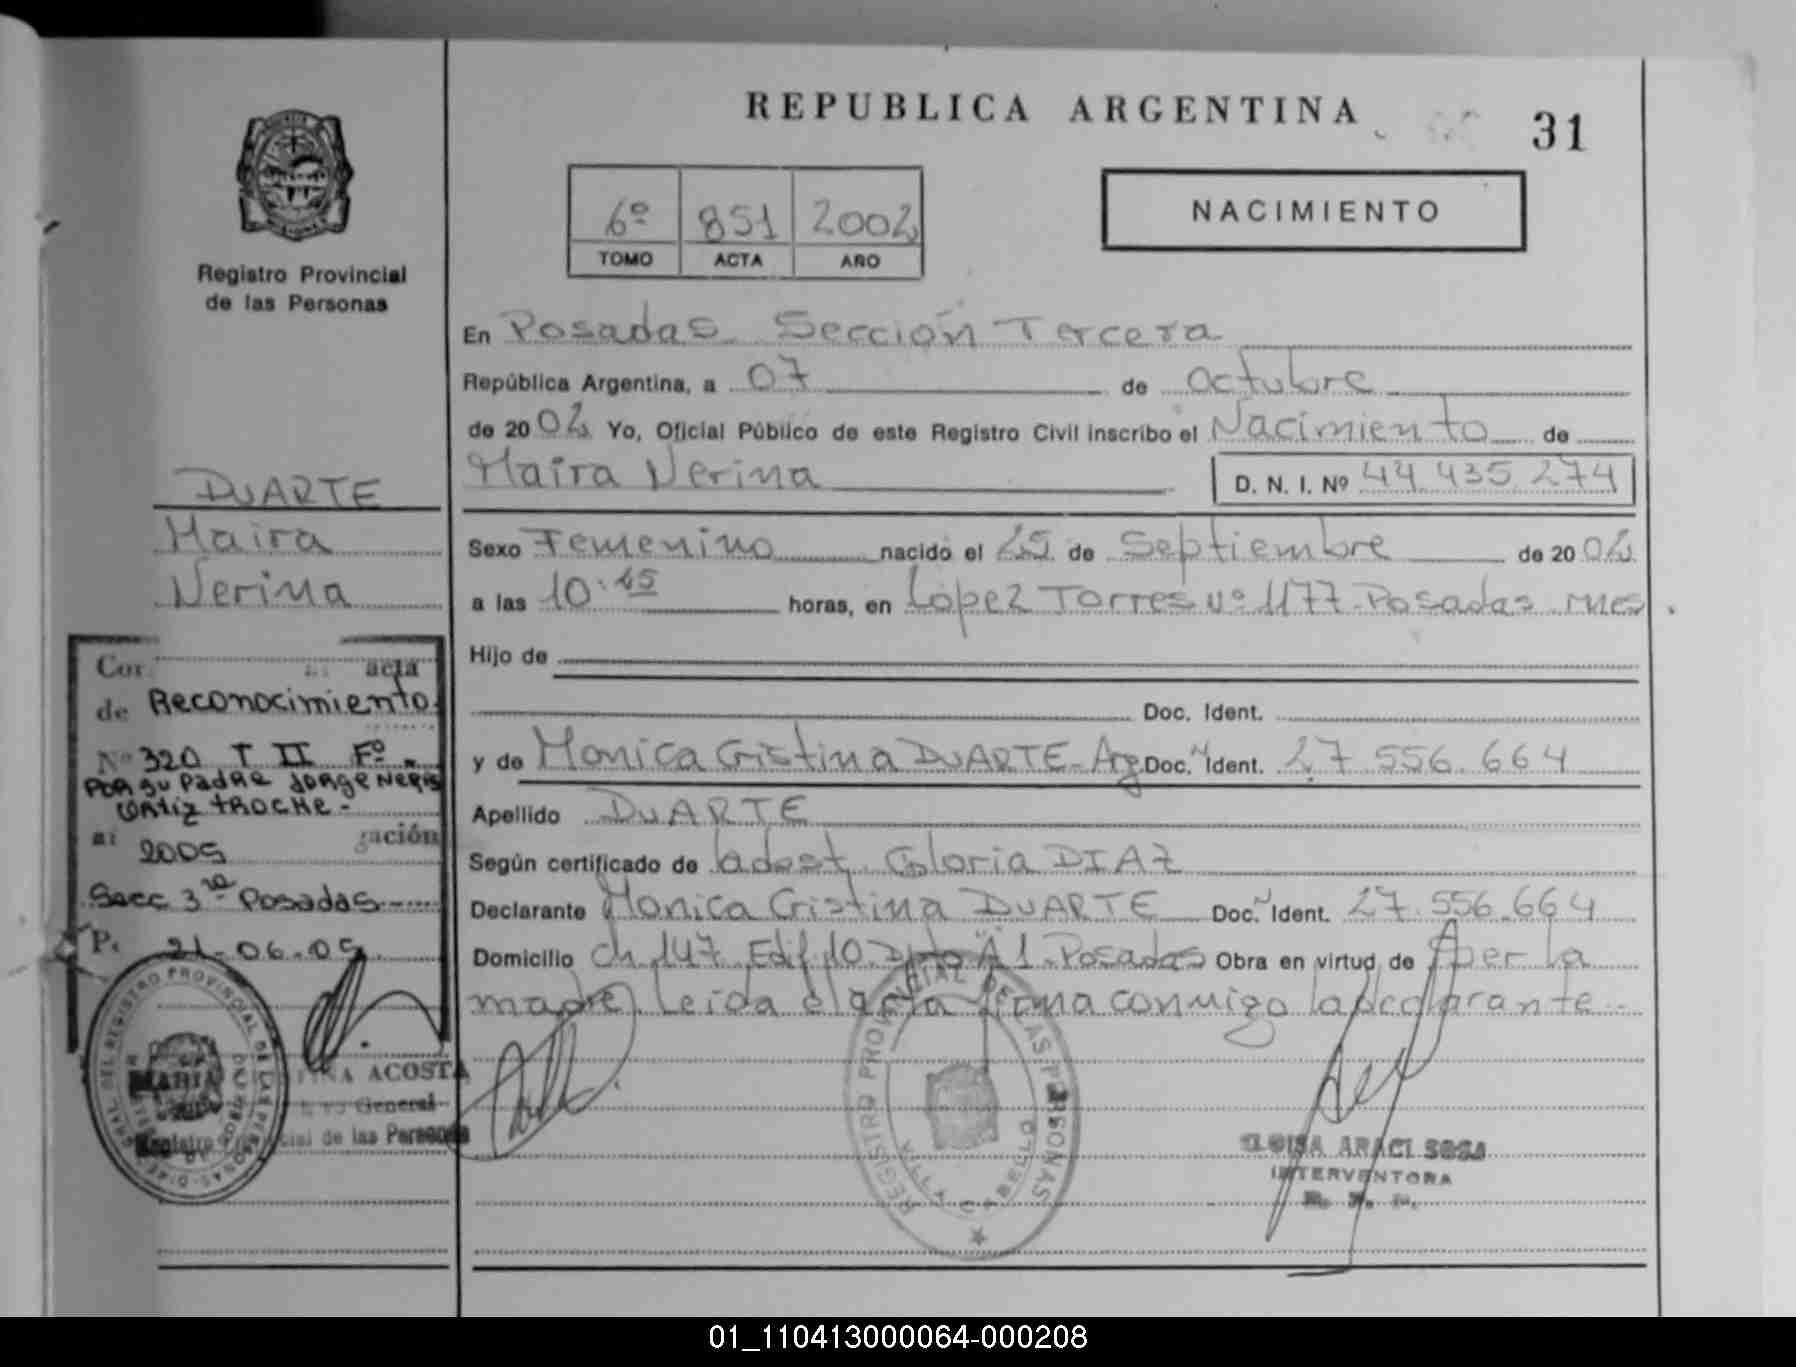 REPUBLICA ARGENTINA
31
6º 851 2002
TOMO ACTA AÑO
NACIMIENTO
Registro Provincial
de las Personas
DUARTE
Maira
Nerina
En Posadas Sección Tercera
República Argentina, a 07 de octubre
de 2002 Yo, Oficial Público de este Registro Civil inscribo el Nacimiento de
Maira Nerina D. N. I. Nº 44.435.274
Sexo Femenino nacido el 25 de Septiembre de 2002
a las 10:45 horas, en Lopez Torres Nº 1177 - Posadas mes.
Hijo de
Doc. Ident.
y de Monica Cristina DUARTE - Arg Doc. Ident. 27.556.664
Apellido DUARTE
Según certificado de obst. Gloria DIAZ
Declarante Monica Cristina DUARTE Doc. Ident. 27.556.664
Domicilio ch 147 Edif 10 Dpto "A" 1 - Posadas Obra en virtud de ser la
madre. Leida el acta firma conmigo la declarante -
acta
de Reconocimiento
Nº 320 T II Fº -
POR SU PADRE JORGE NERIS
ORTIZ TROCHE -
2005
Secc 3ra Posadas
21-06-05
MARIA ACOSTA
General
Registro Provincial de las Personas
REGISTRO PROVINCIAL DE LAS PERSONAS
VILLA CABELLO
ELOISA ARACI SOSA
INTERVENTORA
R. P. P.
01_110413000064-000208